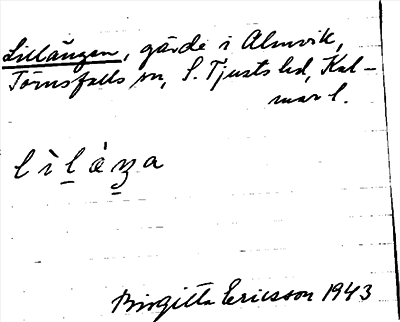 Lillängen, gärde i Almvik,
Törnsfalls sn, S. Tjusts hd, Kal-
mar l.
lìlàŋa
Birgitta Ericsson 1943